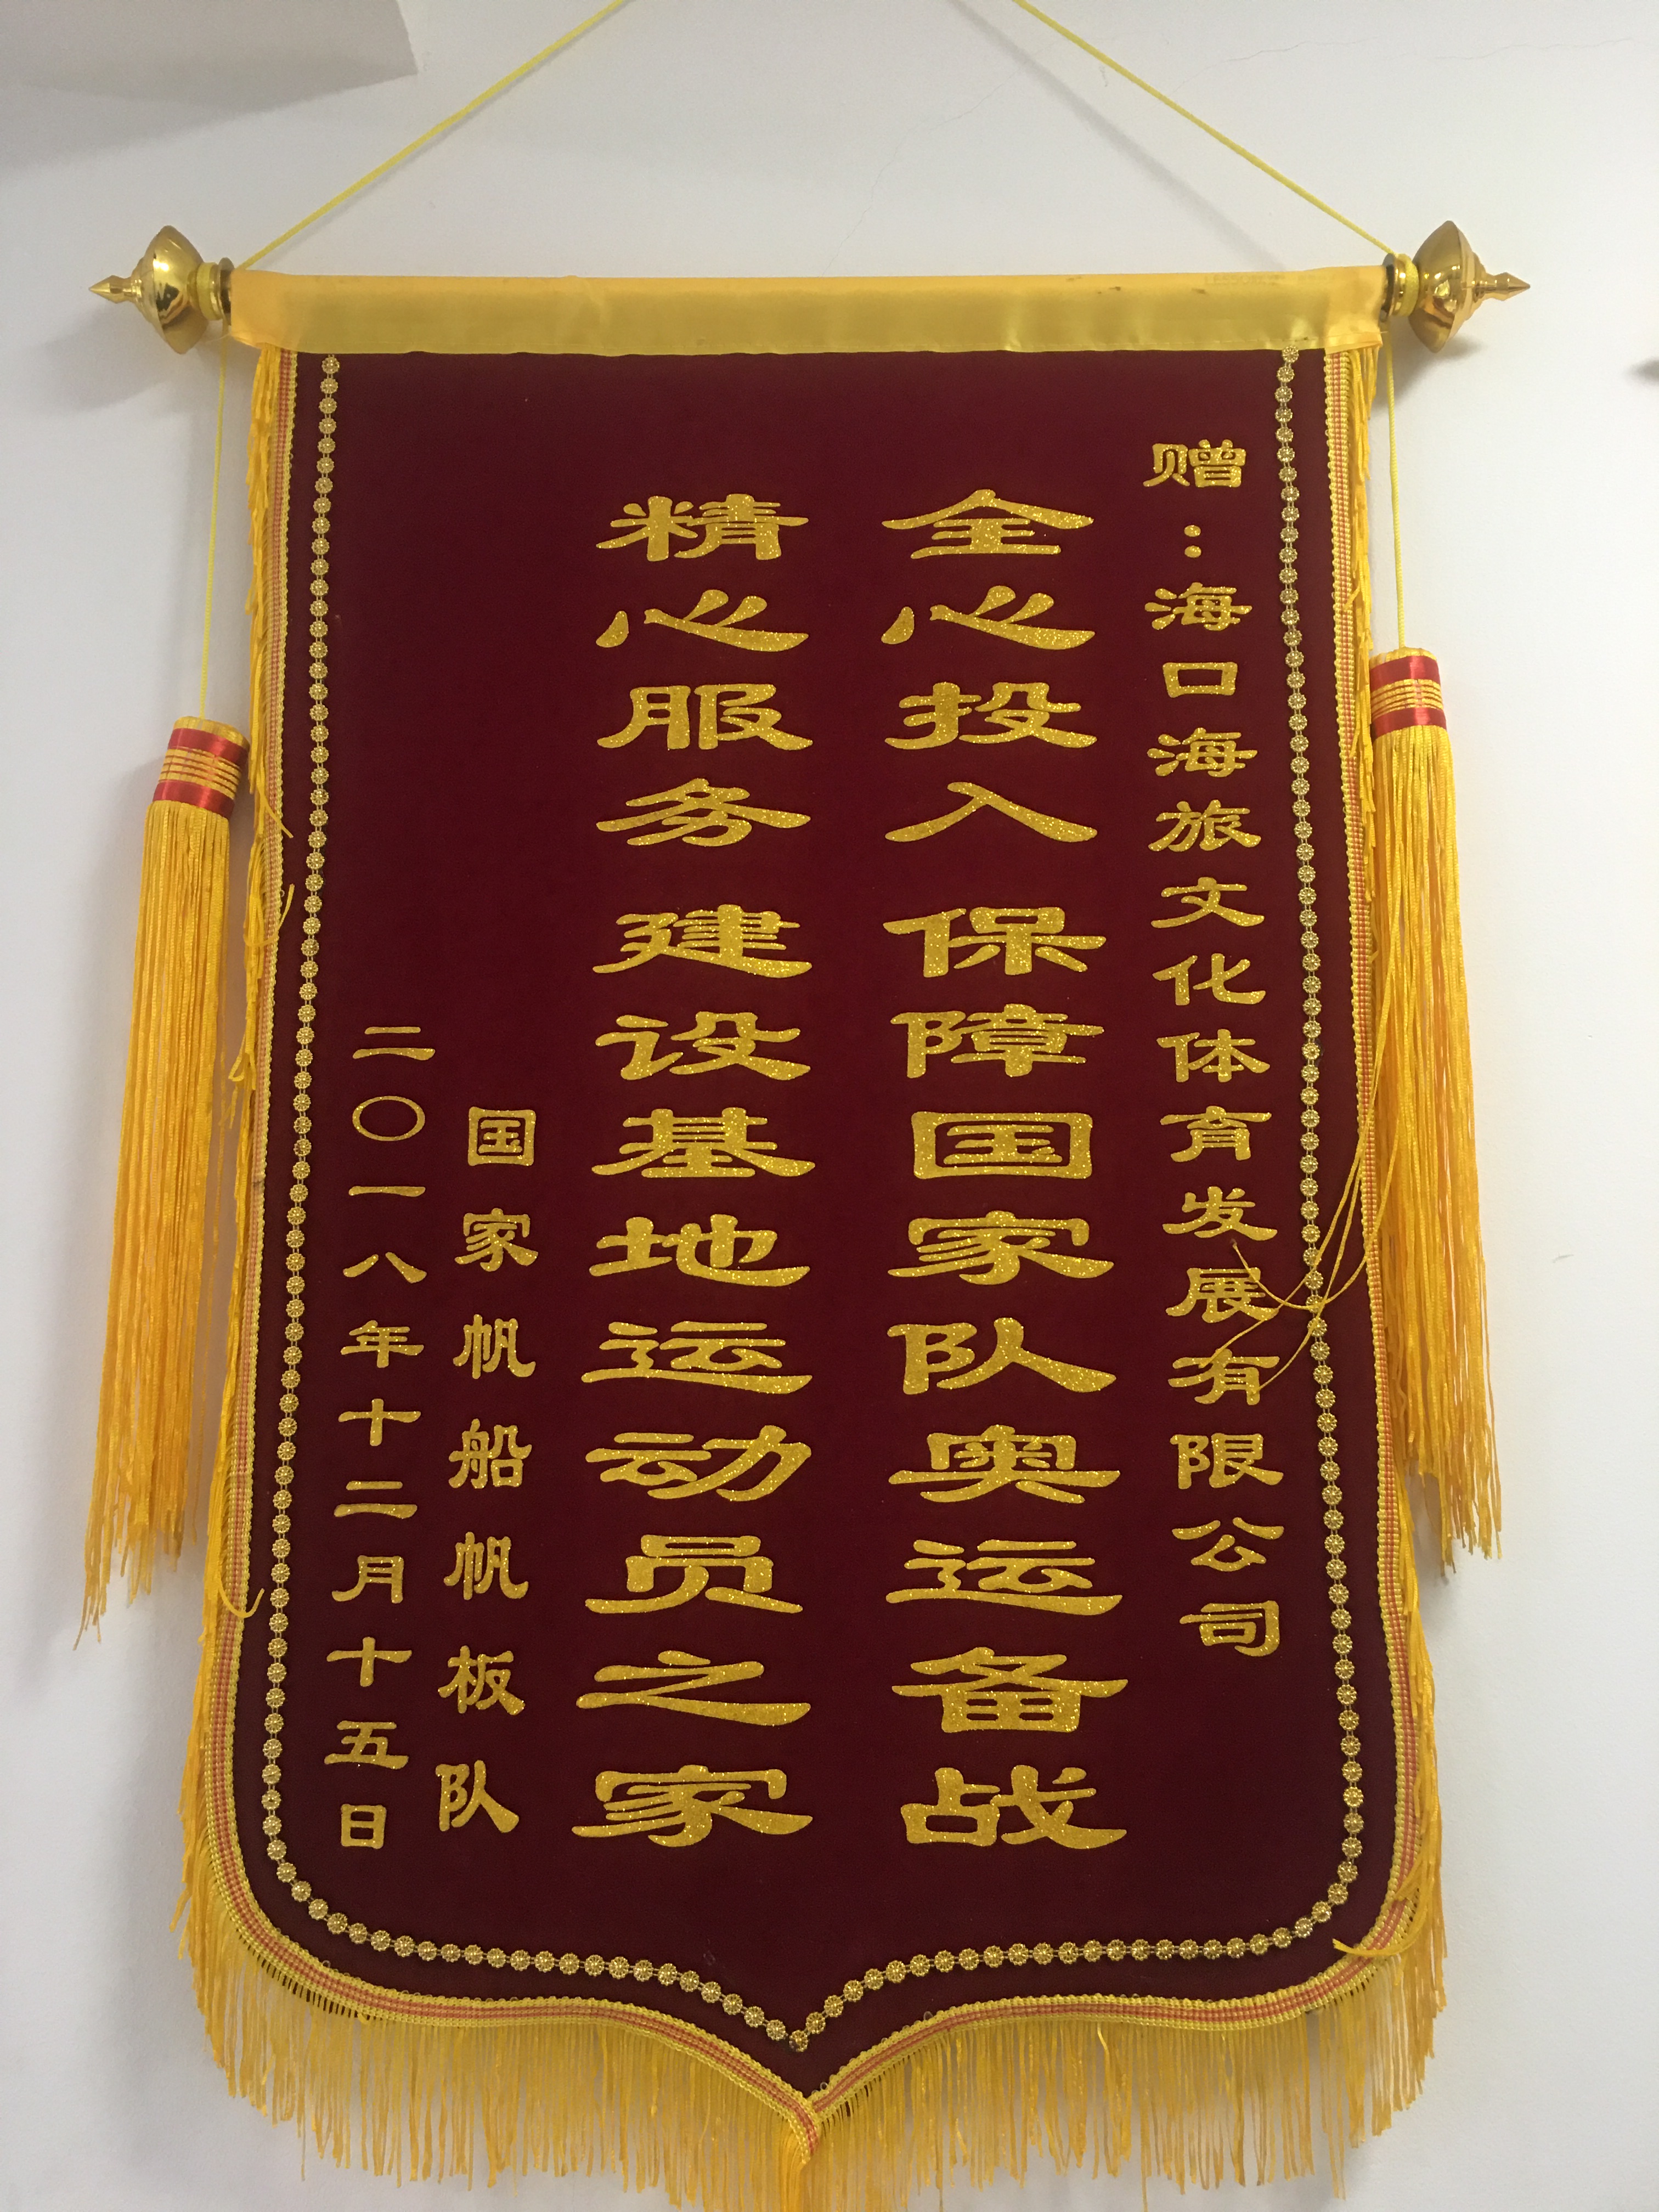 赠：海口海旅文化体育发展有限公司
全心投入保障国家队奥运备战
精心服务建设基地运动员之家
国家帆船帆板队
二〇一八年十二月十五日